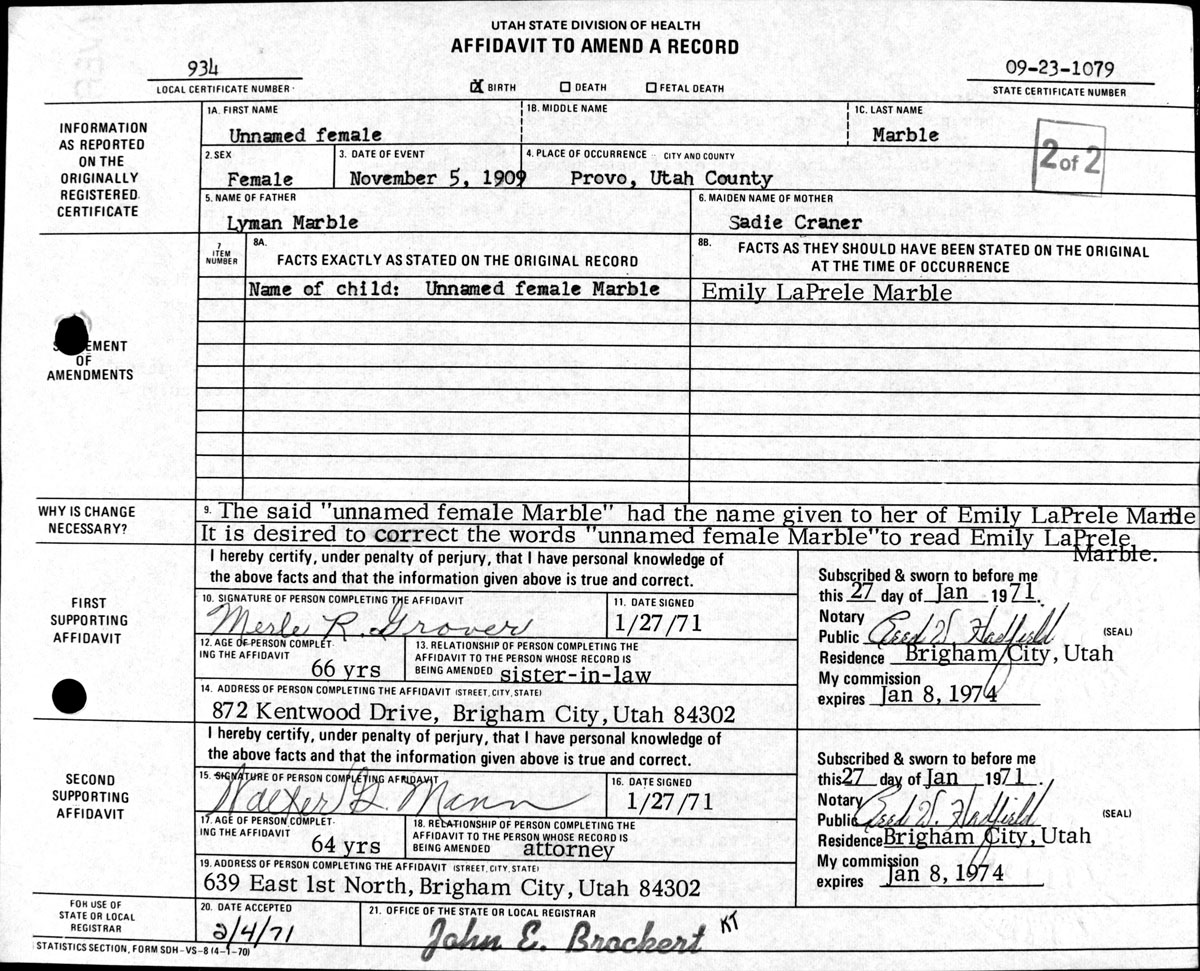 UTAH STATE DIVISION OF HEALTH
AFFIDAVIT TO AMEND A RECORD
934
LOCAL CERTIFICATE NUMBER
X BIRTH DEATH FETAL DEATH
09-23-1079
STATE CERTIFICATE NUMBER
INFORMATION AS REPORTED ON THE ORIGINALLY REGISTERED CERTIFICATE
1A. FIRST NAME 1B. MIDDLE NAME 1C. LAST NAME
Unnamed female Marble
2 of 2
2. SEX 3. DATE OF EVENT 4. PLACE OF OCCURRENCE CITY AND COUNTY
Female November 5, 1909 Provo, Utah County
5. NAME OF FATHER 6. MAIDEN NAME OF MOTHER
Lyman Marble Sadie Craner
7 ITEM NUMBER
8A. FACTS EXACTLY AS STATED ON THE ORIGINAL RECORD
8B. FACTS AS THEY SHOULD HAVE BEEN STATED ON THE ORIGINAL
AT THE TIME OF OCCURRENCE
Name of child: Unnamed female Marble Emily LaPrele Marble
OF
AMENDMENTS
WHY IS CHANGE NECESSARY?
9. The said "unnamed female Marble" had the name given to her of Emily LaPrele Marble
It is desired to correct the words "unnamed female Marble"to read Emily LaPrele
Marble.
FIRST SUPPORTING AFFIDAVIT
I hereby certify, under penalty of perjury, that I have personal knowledge of
the above facts and that the information given above is true and correct.
10. SIGNATURE OF PERSON COMPLETING THE AFFIDAVIT 11. DATE SIGNED
Merle R. Grover 1/27/71
12. AGE OF PERSON COMPLETING THE AFFIDAVIT 66 yrs
13. RELATIONSHIP OF PERSON COMPLETING THE
AFFIDAVIT TO THE PERSON WHOSE RECORD IS
BEING AMENDED sister-in-law
14. ADDRESS OF PERSON COMPLETING THE AFFIDAVIT (STREET, CITY, STATE)
872 Kentwood Drive, Brigham City, Utah 84302
Subscribed & sworn to before me
this 27 day of Jan 1971.
Notary
Public Reed W. Hadfield (SEAL)
Residence Brigham City, Utah
My commission
expires Jan 8, 1974
SECOND SUPPORTING AFFIDAVIT
I hereby certify, under penalty of perjury, that I have personal knowledge of
the above facts and that the information given above is true and correct.
15. SIGNATURE OF PERSON COMPLETING AFFIDAVIT 16. DATE SIGNED
Walter G. Mann 1/27/71
17. AGE OF PERSON COMPLETING THE AFFIDAVIT 64 yrs
18. RELATIONSHIP OF PERSON COMPLETING THE
AFFIDAVIT TO THE PERSON WHOSE RECORD IS
BEING AMENDED attorney
19. ADDRESS OF PERSON COMPLETING THE AFFIDAVIT (STREET, CITY, STATE)
639 East 1st North, Brigham City, Utah 84302
Subscribed & sworn to before me
this 27 day of Jan 1971.
Notary
Public Reed W. Hadfield (SEAL)
Residence Brigham City, Utah
My commission
expires Jan 8, 1974
FOR USE OF STATE OR LOCAL REGISTRAR
20. DATE ACCEPTED 21. OFFICE OF THE STATE OR LOCAL REGISTRAR
2/4/71 John E. Brockert KT
STATISTICS SECTION, FORM SDH-VS-8 (4-1-70)